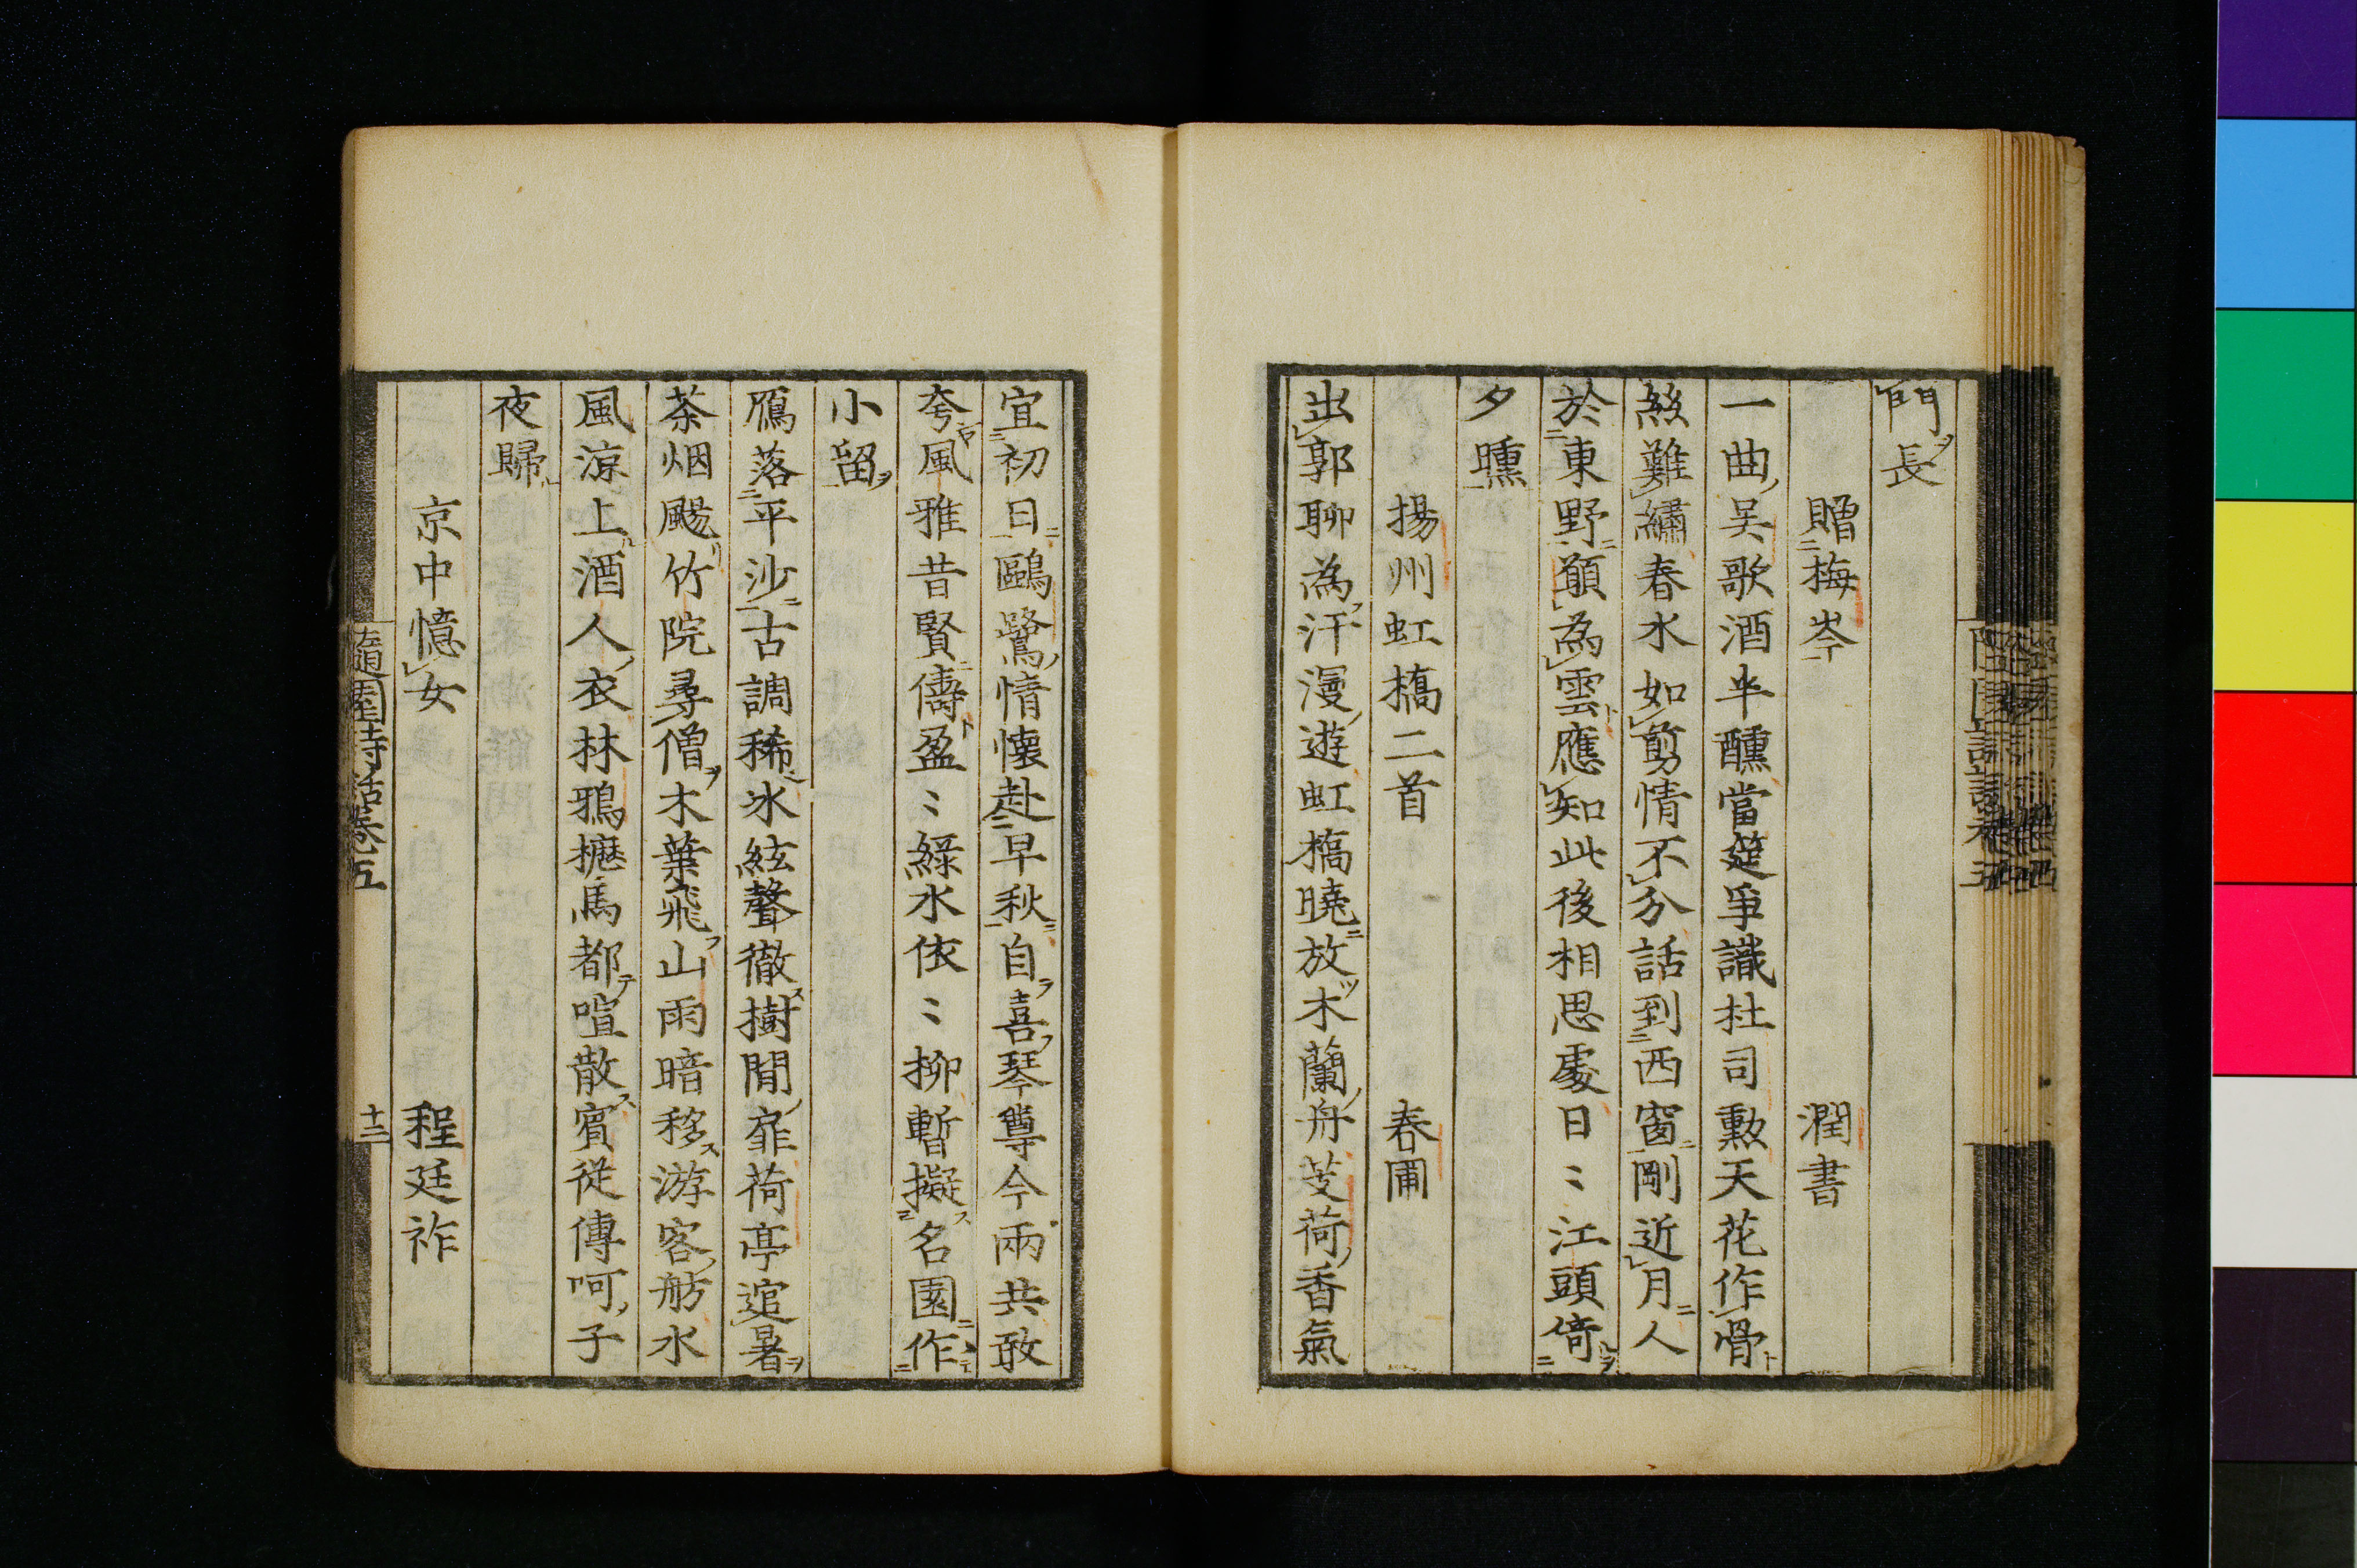 門長
贈梅岑　潤書
一曲吴歌酒半醺當筵爭識杜司勲天花作骨
絲難繡春水如剪情不分話到西窗剛近月人
於東野願為雲應知此後相思處日〻江頭倚
夕曛
揚州虹橋二首　春圃
出郭聊為汗漫遊虹橋曉放木蘭舟芰荷香氣
宜初日鷗鷺情懐赴早秋自喜琴尊今兩共敢
夸風雅昔賢儔盈〻綠水依〻柳暫擬名園作
小留
鴈落平沙古調稀冰絃聲徹樹間扉荷亭逭暑
茶烟颺竹院尋僧木葉飛山雨暗移游客舫水
風涼上酒人衣林鴉櫪馬都喧散賓從傳呵子
夜歸
京中憶女　程廷祚
隨園詩話卷五　十二